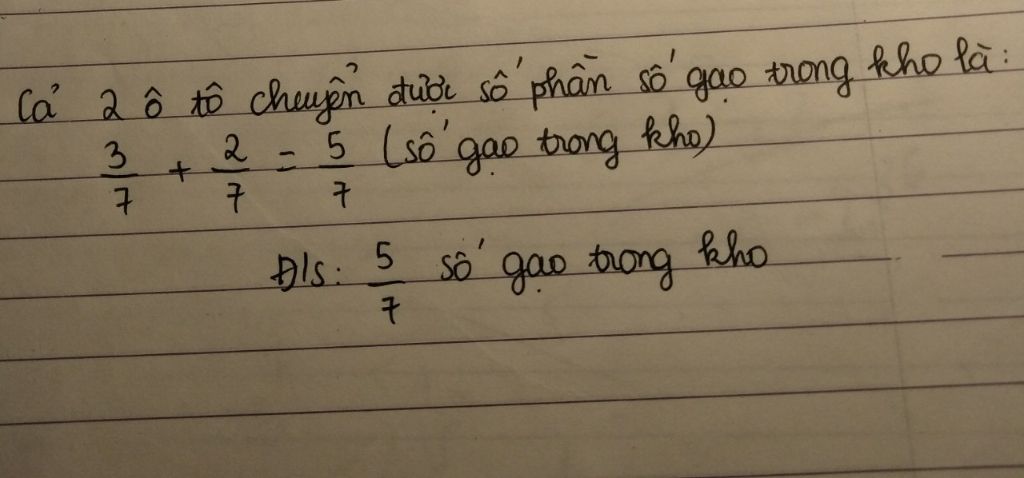 Cả 2 ô tô chuyển được số phần số gạo trong kho là:
3/7 + 2/7 = 5/7 (số gạo trong kho)
Đ/s: 5/7 số gạo trong kho